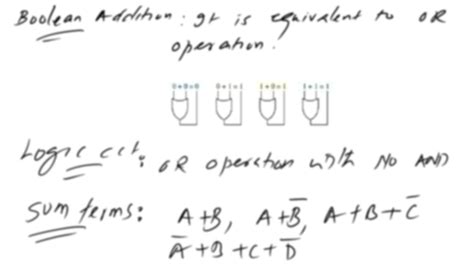 Boolean Addition: It is equivalent to OR
operation.
0+0=0 0+1=1 1+0=1 1+1=1
Logic cct: OR operation with No AND
Sum terms: A+B, A+B̅, A+B+C̅
A̅+B+C+D̅